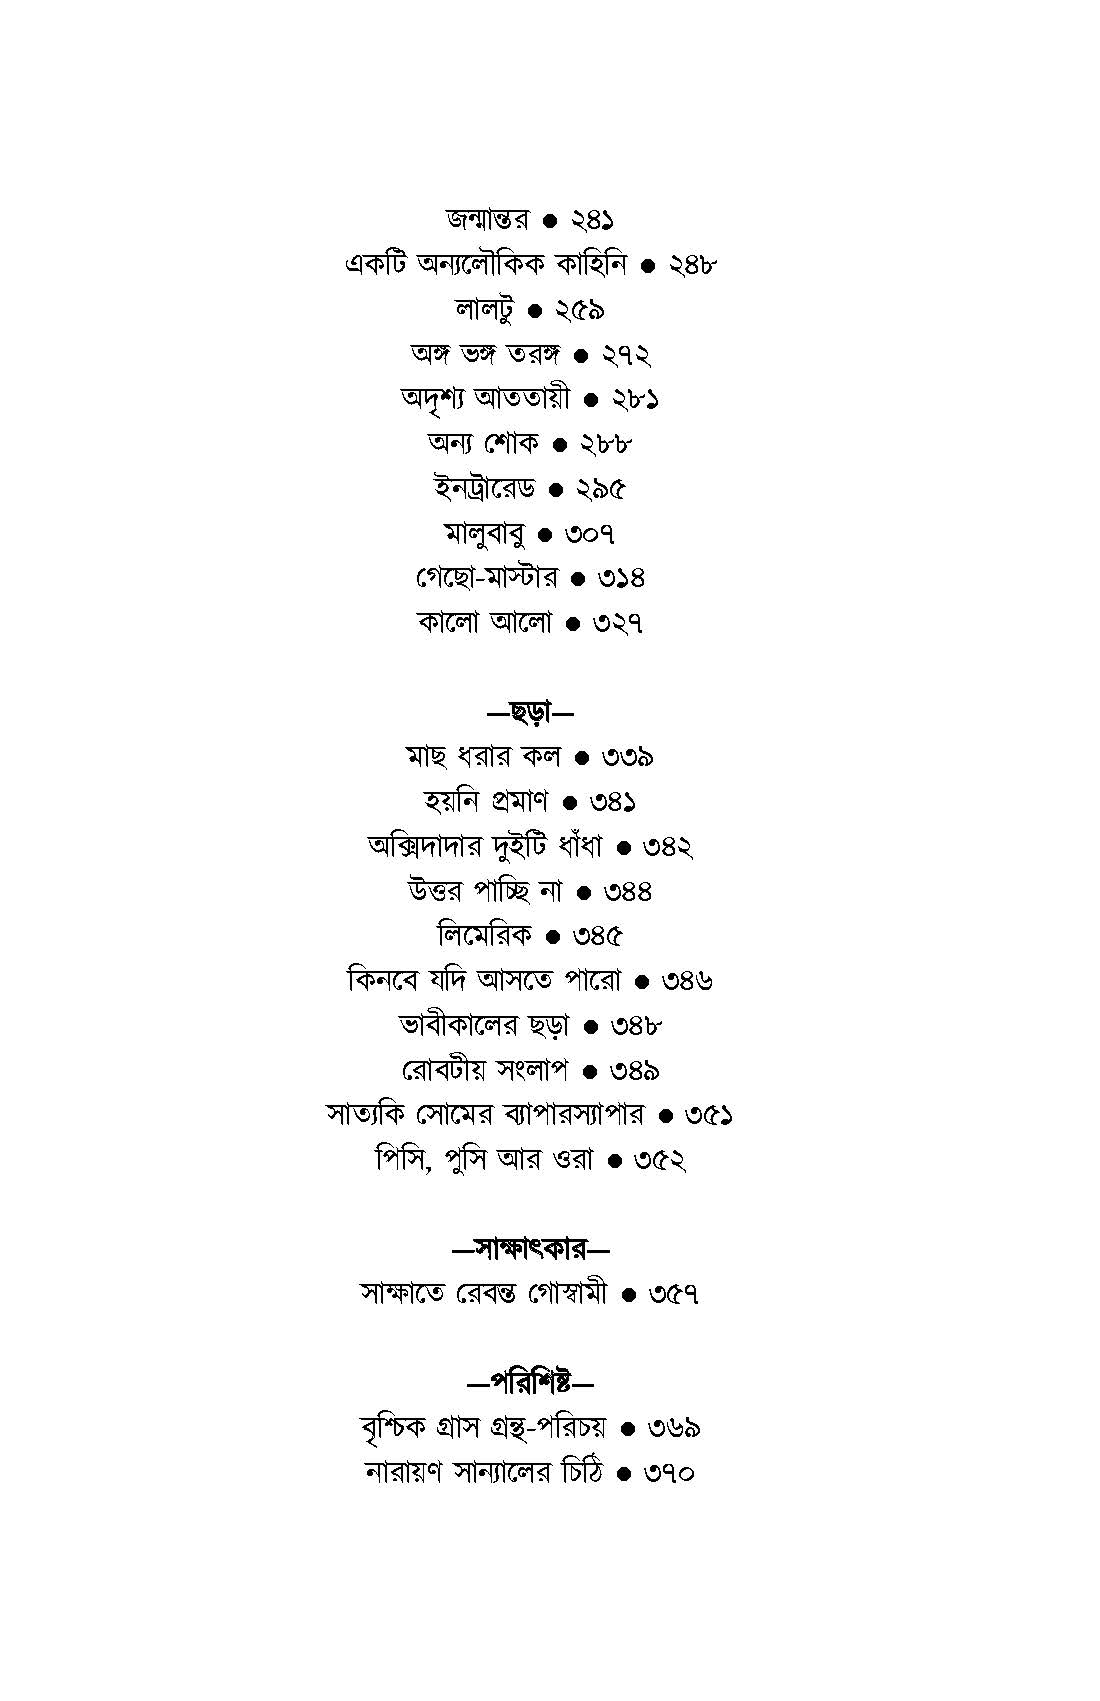 জন্মান্তর ● ২৪১
একটি অন্যলৌকিক কাহিনি ● ২৪৮
লালটু ● ২৫৯
অঙ্গ ভঙ্গ তরঙ্গ ● ২৭২
অদৃশ্য আততায়ী ● ২৮১
অন্য শোক ● ২৮৮
ইনট্রারেড ● ২৯৫
মালুবাবু ● ৩০৭
গেছো-মাস্টার ● ৩১৪
কালো আলো ● ৩২৭
—ছড়া—
মাছ ধরার কল ● ৩৩৯
হয়নি প্রমাণ ● ৩৪১
অক্সিদাদার দুইটি ধাঁধা ● ৩৪২
উত্তর পাচ্ছি না ● ৩৪৪
লিমেরিক ● ৩৪৫
কিনবে যদি আসতে পারো ● ৩৪৬
ভাবীকালের ছড়া ● ৩৪৮
রোবটীয় সংলাপ ● ৩৪৯
সাত্যকি সোমের ব্যাপারস্যাপার ● ৩৫১
পিসি, পুসি আর ওরা ● ৩৫২
—সাক্ষাৎকার—
সাক্ষাতে রেবন্ত গোস্বামী ● ৩৫৭
—পরিশিষ্ট—
বৃশ্চিক গ্রাস গ্রন্থ-পরিচয় ● ৩৬৯
নারায়ণ সান্যালের চিঠি ● ৩৭০